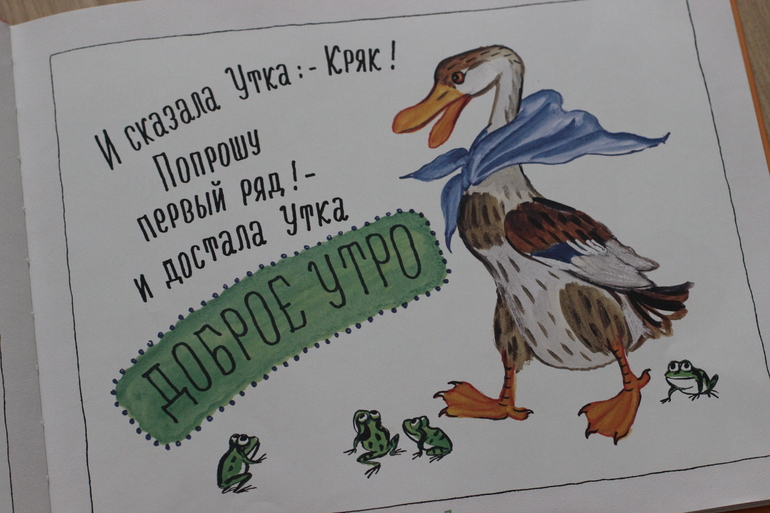 И сказала Утка: - Кряк!
Попрошу
первый ряд! -
и достала Утка
ДОБРОЕ УТРО